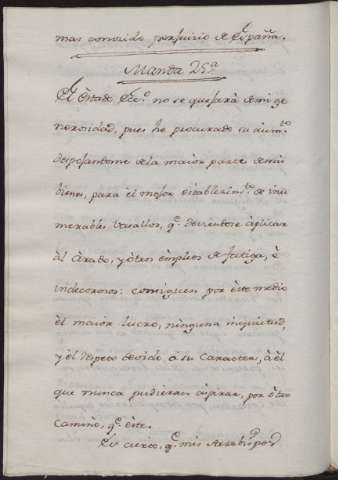 mas conocido perjuicio de España.
Manda 25.ª
El Estado Ecc.º no se quejarà de mi ge
nerosidad, pues he procurado su aum.to
despojandome de la maior parte de mis
bienes, para el mejor establecim.to de inu
merables Vasallos, q.e deviendose àplicar
àl Arado, y òtros èmpleos de fatiga, è
indecorosos: consiguen por èste medio
èl maior lucro, ninguna inquietud,
y èl respeto devido a su caracter, à èl
que nunca pudieran àspirar, por òtro
camino, q.e èste.
Es cierto, q.e mis Arzobispos